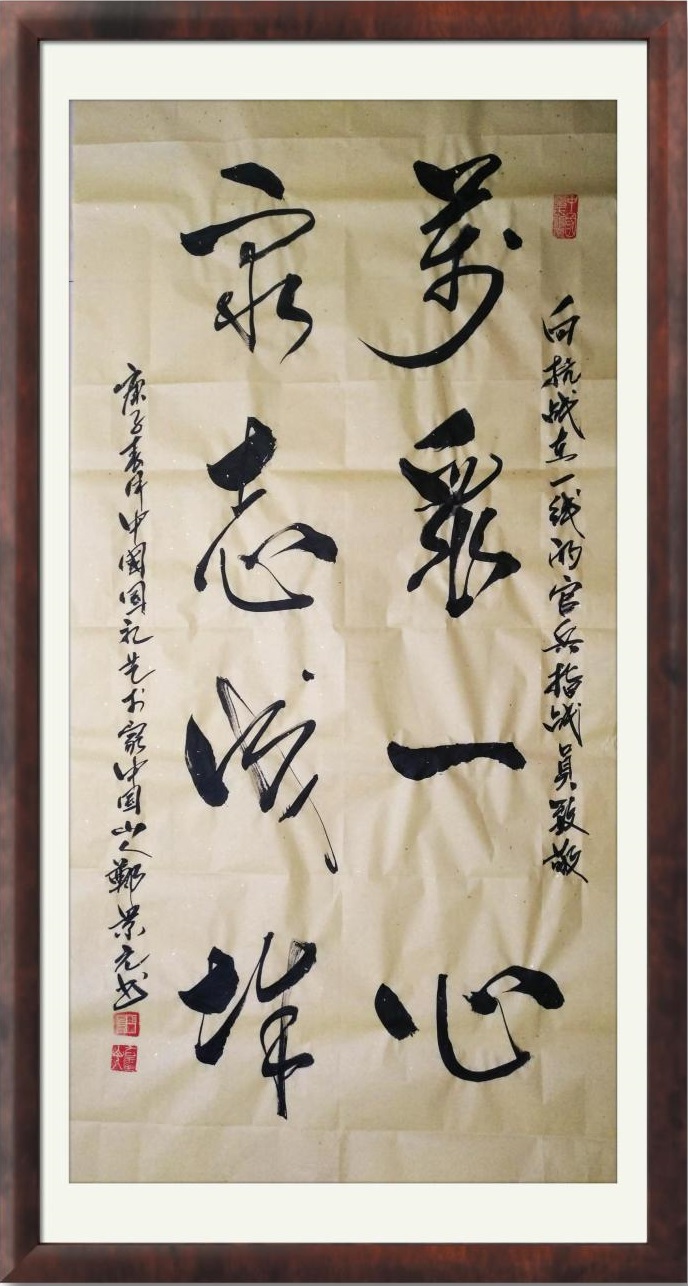 向抗战在一线的官兵指战员致敬
萬衆一心
衆志成城
庚子春中國国礼艺术家中国山人鄭景元书